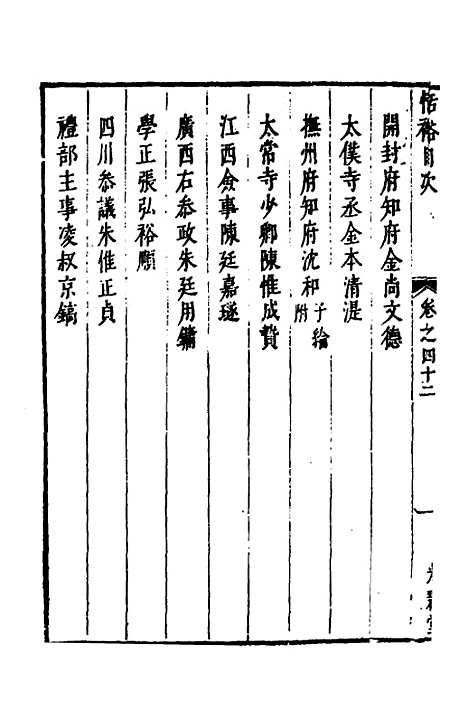 恬裕目次
卷之四十二
一
開封府知府金尚文德
太僕寺丞金本清湜
撫州府知府沈和附子綸
太常寺少卿陳惟成贄
江西僉事陳廷嘉璲
廣西右叅政朱廷用鏞
學正張弘裕順
四川叅議朱惟正貞
禮部主事凌叔京鎬